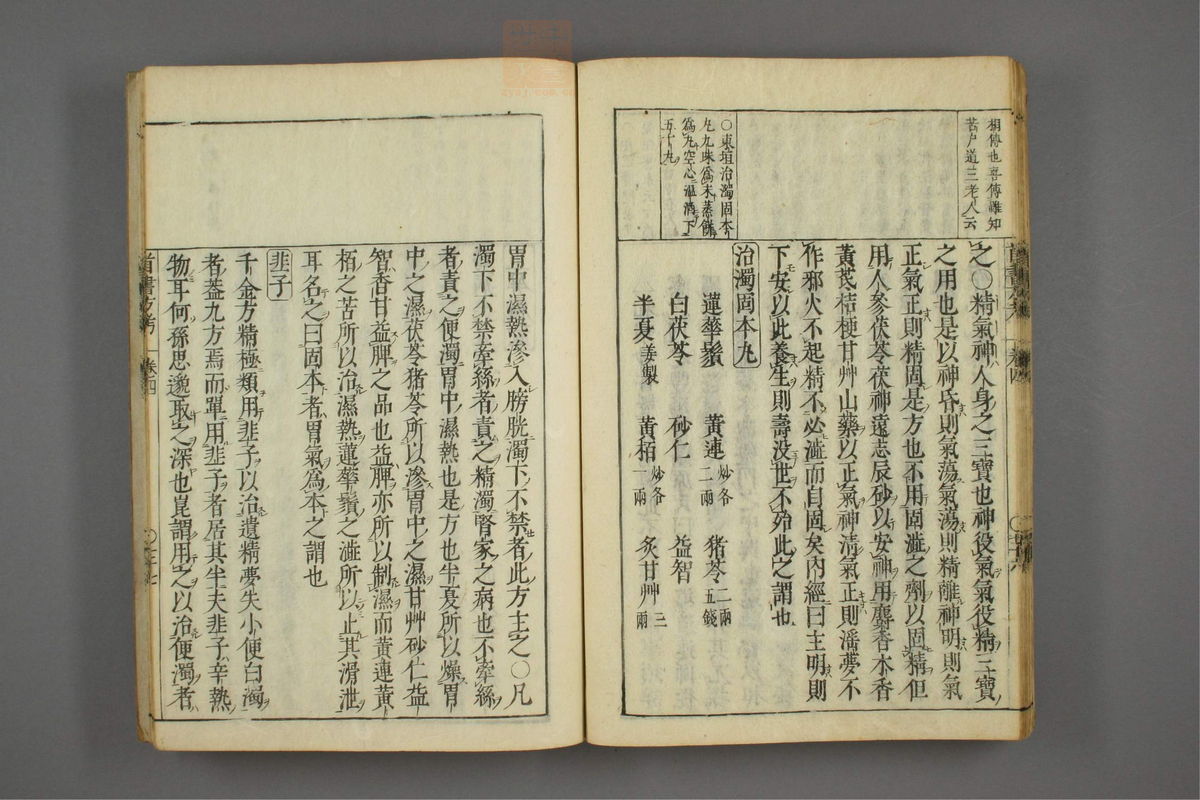 相傳也喜傳雖知
苦戶道三老人云
之〇精氣神人身之三寶也神役氣氣役精三寶
之用也是以神昏則氣蕩氣蕩則精離神明則氣
正氣正則精固是方也不用固澁之劑以固精但
用人參茯苓茯神遠志辰砂以安神用麝香木香
黃芪桔梗甘艸山藥以正氣神清氣正則滛夢不
作邪火不起精不必澁而自固矣內經曰主明則
下安以此養生則壽没世不殆此之謂也
〇東垣治濁固本
九九味爲末蒸餅
爲九空心溫酒下
五十九
治濁固本九
蓮蘂鬚 黃連炒各二兩 猪苓二兩五錢
白茯苓 砂仁 益智
半夏姜製 黃栢炒各一兩 炙甘艸三兩
首書方考 卷四
胃中濕熱滲入膀胱濁下不禁者此方主之〇凡
濁下不禁牽絲者責之精濁腎家之病也不牽絲
者責之便濁胃中濕熱也是方也半夏所以燥胃
中之濕茯苓猪苓所以滲胃中之濕甘艸砂仁益
智香甘益脾之品也益脾亦所以制濕而黃連黃
栢之苦所以治濕熱蓮蘂鬚之澁所以止其滑泄
耳名之曰固本者胃氣爲本之謂也
韭子
千金方精極類用韭子以治遺精夢失小便白濁
者葢九方焉而單用韭子者居其半夫韭子辛熱
物耳何孫思邈取之深也崑謂用之以治便濁者
首書方考 卷四